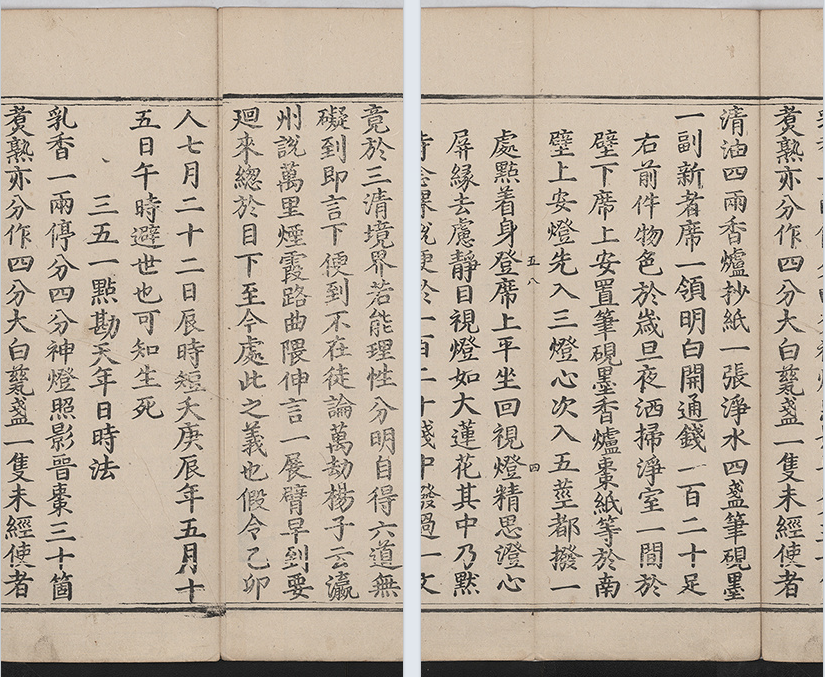 竟於三清境界若能理性分明自得六道無
礙到即言下便到不在徒論萬劫楊子云瀛
州說萬里煙霞路曲隈伸言一展臂早到要
廻來總於目下至今處此之義也假令己卯
人七月二十二日辰時短夭庚辰年五月十
五日午時避世也可知生死
三五一點勘夭年日時法
乳香一兩停分四分神燈照影晉棗三十箇
煑熟亦分作四分大白甆盞一隻未經使者
煑熟亦分作四分大白甆盞一隻未經使者
清油四兩香爐抄紙一張淨水四盞筆硯墨
一副新者席一領明白開通錢一百二十足
右前件物色於歲旦夜洒掃淨室一間於
壁下席上安置筆硯墨香爐棗紙等於南
壁上安燈先入三燈心次入五莖都撥一
五八 四
處點着身登席上平坐回視燈精思澄心
屏緣去慮靜目視燈如大蓮花其中乃默